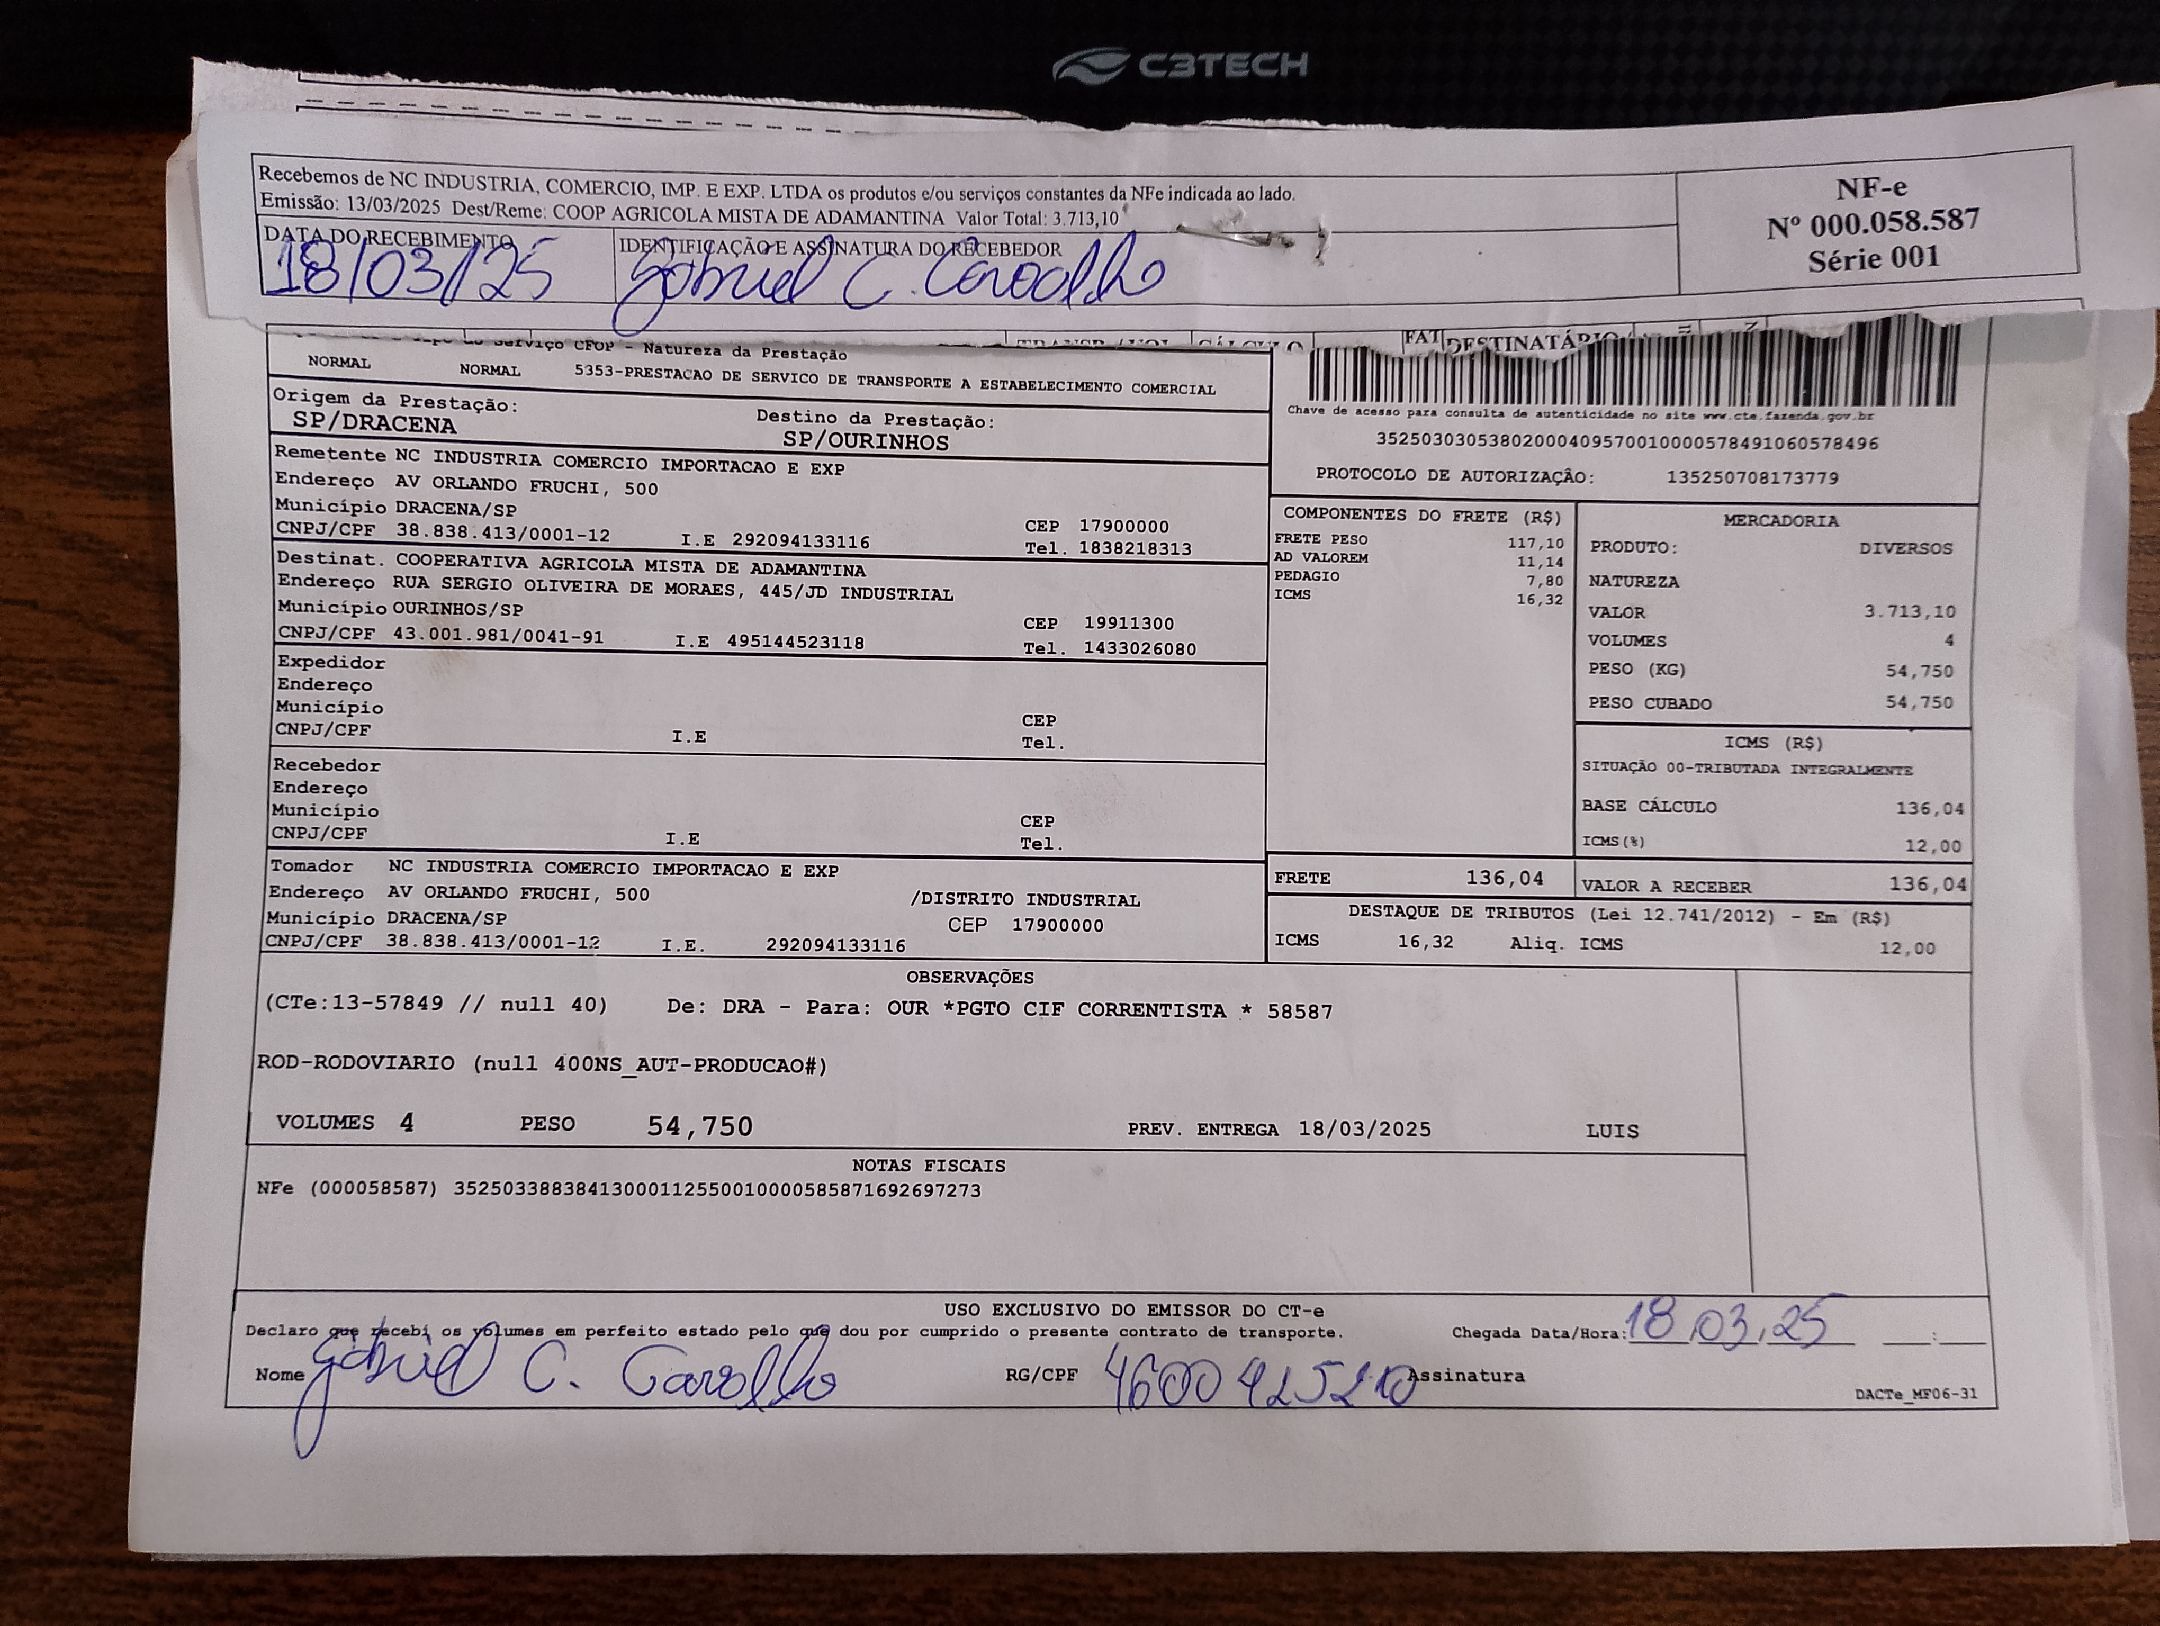 C3TECH
Recebemos de NC INDUSTRIA, COMERCIO, IMP. E EXP. LTDA os produtos e/ou serviços constantes da NFe indicada ao lado.
Emissão: 13/03/2025 Dest/Reme: COOP AGRICOLA MISTA DE ADAMANTINA Valor Total: 3.713,10
NF-e
Nº 000.058.587
Série 001
DATA DO RECEBIMENTO
18/03/25
IDENTIFICAÇÃO E ASSINATURA DO RECEBEDOR
Gabriel C. Carvalho
FAT DESTINATÁRIO
Serviço CFOP - Natureza da Prestação
NORMAL NORMAL 5353-PRESTACAO DE SERVICO DE TRANSPORTE A ESTABELECIMENTO COMERCIAL
Origem da Prestação: Destino da Prestação:
SP/DRACENA SP/OURINHOS
Chave de acesso para consulta de autenticidade no site www.cte.fazenda.gov.br
35250303053802000409570010000578491060578496
PROTOCOLO DE AUTORIZAÇÂO: 135250708173779
Remetente NC INDUSTRIA COMERCIO IMPORTACAO E EXP
Endereço AV ORLANDO FRUCHI, 500
Município DRACENA/SP CEP 17900000
CNPJ/CPF 38.838.413/0001-12 I.E 292094133116 Tel. 1838218313
Destinat. COOPERATIVA AGRICOLA MISTA DE ADAMANTINA
Endereço RUA SERGIO OLIVEIRA DE MORAES, 445/JD INDUSTRIAL
Município OURINHOS/SP CEP 19911300
CNPJ/CPF 43.001.981/0041-91 I.E 495144523118 Tel. 1433026080
Expedidor
Endereço
Município CEP
CNPJ/CPF I.E Tel.
Recebedor
Endereço
Município CEP
CNPJ/CPF I.E Tel.
Tomador NC INDUSTRIA COMERCIO IMPORTACAO E EXP
Endereço AV ORLANDO FRUCHI, 500 /DISTRITO INDUSTRIAL
Município DRACENA/SP CEP 17900000
CNPJ/CPF 38.838.413/0001-12 I.E. 292094133116
COMPONENTES DO FRETE (R$)
FRETE PESO 117,10
AD VALOREM 11,14
PEDAGIO 7,80
ICMS 16,32
MERCADORIA
PRODUTO: DIVERSOS
NATUREZA
VALOR 3.713,10
VOLUMES 4
PESO (KG) 54,750
PESO CUBADO 54,750
ICMS (R$)
SITUAÇÃO 00-TRIBUTADA INTEGRALMENTE
BASE CÁLCULO 136,04
ICMS(%) 12,00
FRETE 136,04 VALOR A RECEBER 136,04
DESTAQUE DE TRIBUTOS (Lei 12.741/2012) - Em (R$)
ICMS 16,32 Aliq. ICMS 12,00
OBSERVAÇÕES
(CTe:13-57849 // null 40) De: DRA - Para: OUR *PGTO CIF CORRENTISTA * 58587
ROD-RODOVIARIO (null 400NS_AUT-PRODUCAO#)
VOLUMES 4 PESO 54,750 PREV. ENTREGA 18/03/2025 LUIS
NOTAS FISCAIS
NFe (000058587) 35250338838413000112550010000585871692697273
USO EXCLUSIVO DO EMISSOR DO CT-e
Declaro que recebi os volumes em perfeito estado pelo que dou por cumprido o presente contrato de transporte. Chegada Data/Hora: 18/03/25 __:__
Nome Gabriel C. Carvalho RG/CPF Assinatura
DACTe_MF06-31